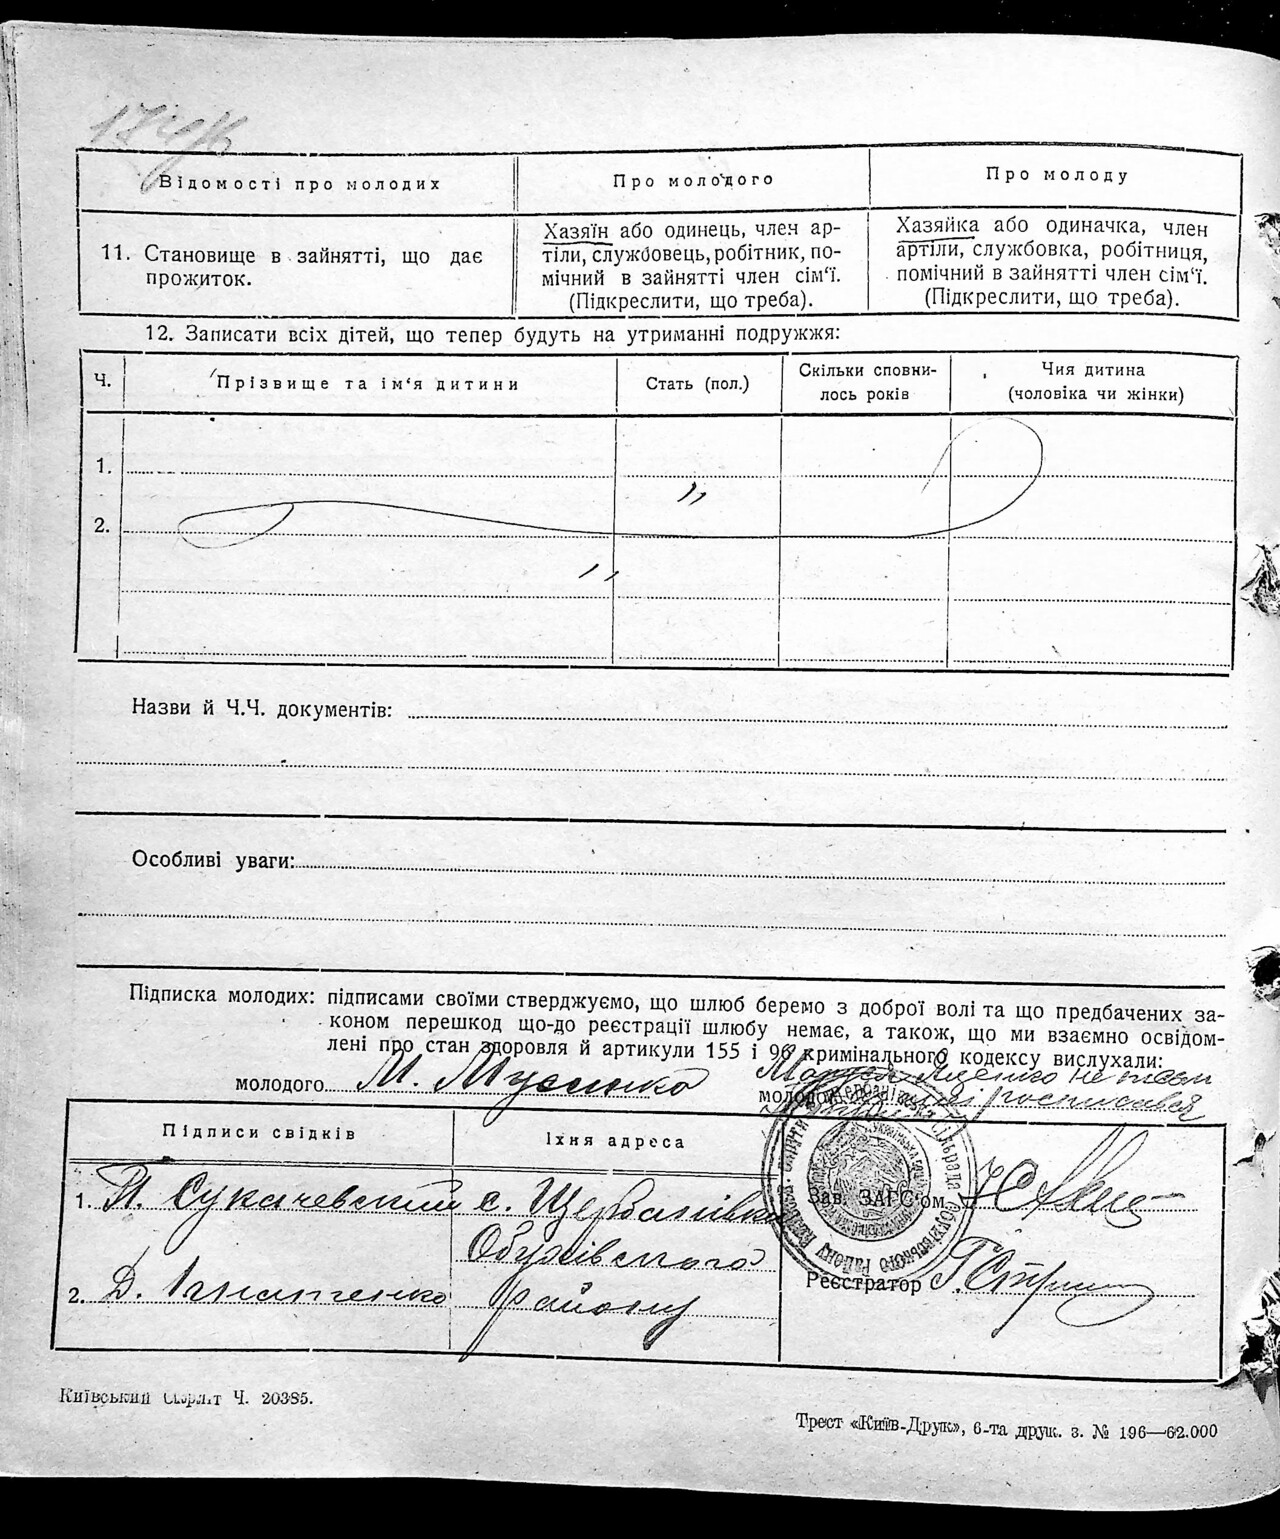 Відомості про молодих
Про молодого
Про молоду
11. Становище в зайнятті, що дає
прожиток.
Хазяїн або одинець, член ар-
тіли, службовець, робітник, по-
мічний в зайнятті член сім'ї.
(Підкреслити, що треба).
Хазяйка або одиначка, член
артіли, службовка, робітниця,
помічний в зайнятті член сім'ї.
(Підкреслити, що треба).
12. Записати всіх дітей, що тепер будуть на утриманні подружжя:
Ч.
Прізвище та ім'я дитини
Стать (пол.)
Скільки сповни-
лось років
Чия дитина
(чоловіка чи жінки)
1.
2.
Назви й Ч.Ч. документів:
Особливі уваги:
Підписка молодих: підписами своїми стверджуємо, що шлюб беремо з доброї волі та що предбачених за-
коном перешкод що-до реєстрації шлюбу немає, а також, що ми взаємно освідом-
лені про стан здоровля й артикули 155 і 96 кримінального кодексу вислухали:
молодого М. Мусієнко
молодої
Підписи свідків
Їхня адреса
1. П. Сукачевский с. Щербанівка
Обухівського
2. Д. Ігнатенко району
Зав. ЗАГС'ом
Реєстратор
Київський Ч. 20385.
Трест «Київ-Друк», 6-та друк. з. № 196—62.000